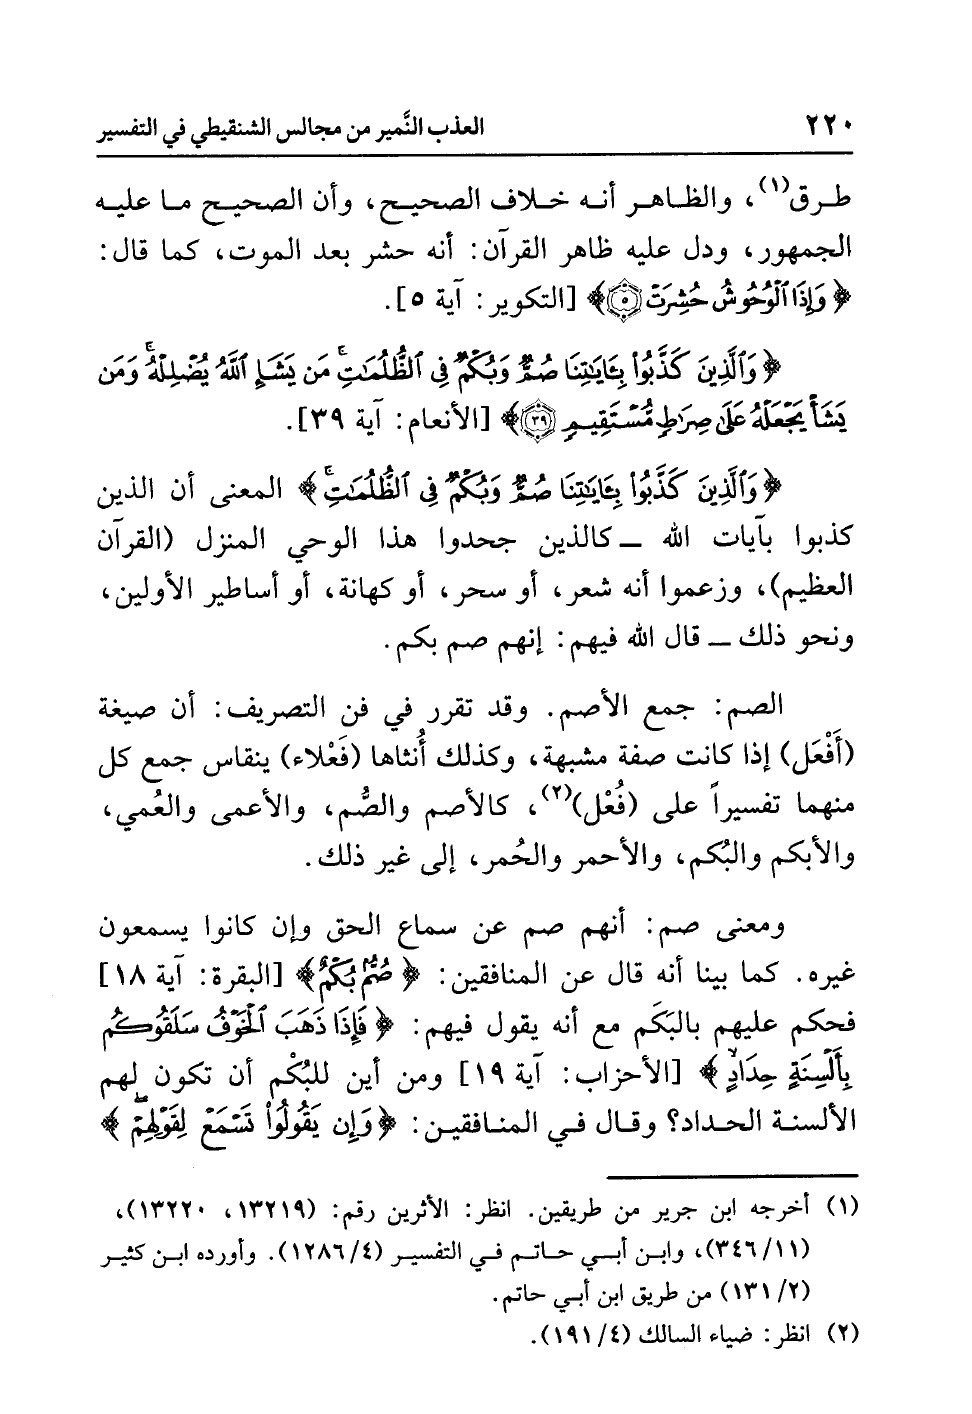 ٢٢٠ العذب النَّمير من مجالس الشنقيطي في التفسير
طرق(١)، والظاهر أنه خلاف الصحيح، وأن الصحيح ما عليه
الجمهور، ودل عليه ظاهر القرآن: أنه حشر بعد الموت، كما قال:
﴿ وَإِذَا ٱلْوُحُوشُ حُشِرَتْ ۝٥﴾ [التكوير: آية ٥].
﴿ وَٱلَّذِينَ كَذَّبُوا۟ بِـَٔايَـٰتِنَا صُمٌّ وَبُكْمٌ فِى ٱلظُّلُمَـٰتِ ۗ مَن يَشَإِ ٱللَّهُ يُضْلِلْهُ ۗ وَمَن
يَشَأْ يَجْعَلْهُ عَلَىٰ صِرَٰطٍ مُّسْتَقِيمٍ ۝٣٩﴾ [الأنعام: آية ٣٩].
﴿ وَٱلَّذِينَ كَذَّبُوا۟ بِـَٔايَـٰتِنَا صُمٌّ وَبُكْمٌ فِى ٱلظُّلُمَـٰتِ ۗ ﴾ المعنى أن الذين
كذبوا بآيات الله ــ كالذين جحدوا هذا الوحي المنزل (القرآن
العظيم)، وزعموا أنه شعر، أو سحر، أو كهانة، أو أساطير الأولين،
ونحو ذلك ــ قال الله فيهم: إنهم صم بكم.
الصم: جمع الأصم. وقد تقرر في فن التصريف: أن صيغة
(أَفْعَل) إذا كانت صفة مشبهة، وكذلك أُنثاها (فَعْلاء) ينقاس جمع كل
منهما تفسيراً على (فُعْل)(٢)، كالأصم والصُّم، والأعمى والعُمي،
والأبكم والبُكم، والأحمر والحُمر، إلى غير ذلك.
ومعنى صم: أنهم صم عن سماع الحق وإن كانوا يسمعون
غيره. كما بينا أنه قال عن المنافقين: ﴿ صُمٌّۢ بُكْمٌ﴾ [البقرة: آية ١٨]
فحكم عليهم بالبَكَم مع أنه يقول فيهم: ﴿ فَإِذَا ذَهَبَ ٱلْخَوْفُ سَلَقُوكُم
بِأَلْسِنَةٍ حِدَادٍ ﴾ [الأحزاب: آية ١٩] ومن أين للبُكْم أن تكون لهم
الألسنة الحداد؟ وقال في المنافقين: ﴿ وَإِن يَقُولُوا۟ تَسْمَعْ لِقَوْلِهِمْ ۖ ﴾
(١) أخرجه ابن جرير من طريقين. انظر: الأثرين رقم: (١٣٢١٩، ١٣٢٢٠)،
(١١/ ٣٤٦)، وابن أبي حاتم في التفسير (٤/ ١٢٨٦). وأورده ابن كثير
(٢/ ١٣١) من طريق ابن أبي حاتم.
(٢) انظر: ضياء السالك (٤/ ١٩١).